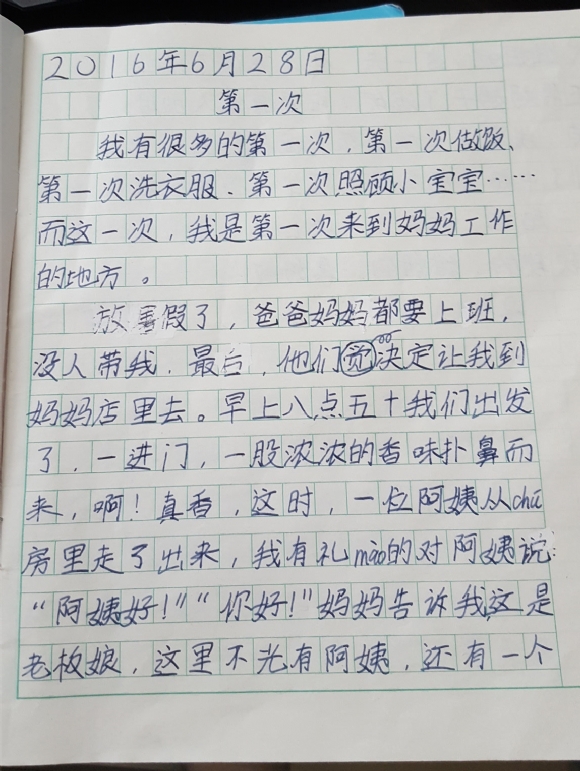 2016年6月28日
第一次
我有很多的第一次，第一次做饭、
第一次洗衣服、第一次照顾小宝宝……
而这一次，我是第一次来到妈妈工作
的地方。
放暑假了，爸爸妈妈都要上班，
没人带我，最后，他们决定让我到
妈妈店里去。早上八点五十我们出发
了，一进门，一股浓浓的香味扑鼻而
来，啊！真香，这时，一位阿姨从chú
房里走了出来，我有礼mào的对阿姨说：
“阿姨好！”“你好！”妈妈告诉我这是
老板娘，这里不光有阿姨，还有一个